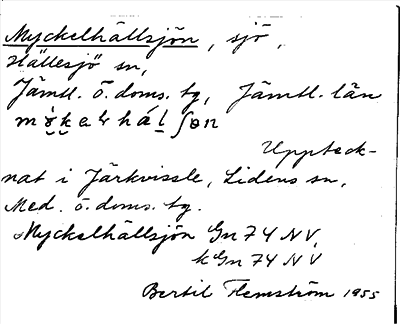 Myckelhällsjön, sjö,
Hällesjö sn,
Jämtl. ö. doms. tg, Jämtl. län
Uppteck-
nat i Järkvissle, Lidens sn,
Med. ö. doms. tg.
Myckelhällsjön Gn 74 NV,
k Gn 74 NV
Bertil Flemström 1955